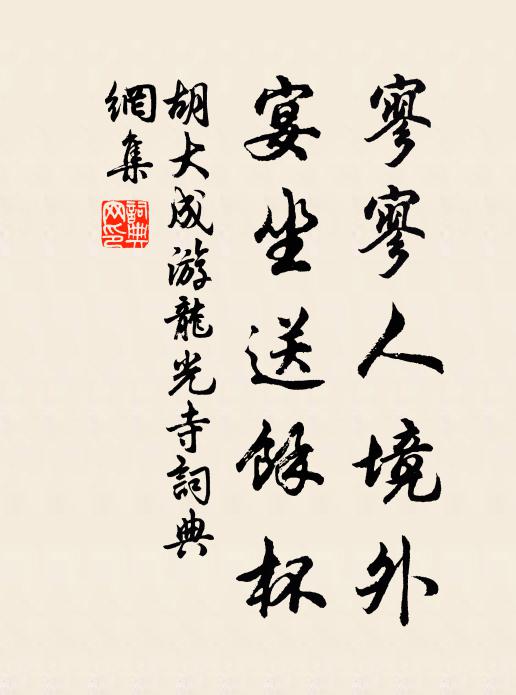 寥寥人境外
宴坐送餘杯
胡大成游龍光寺詞典
網集
詞典網印